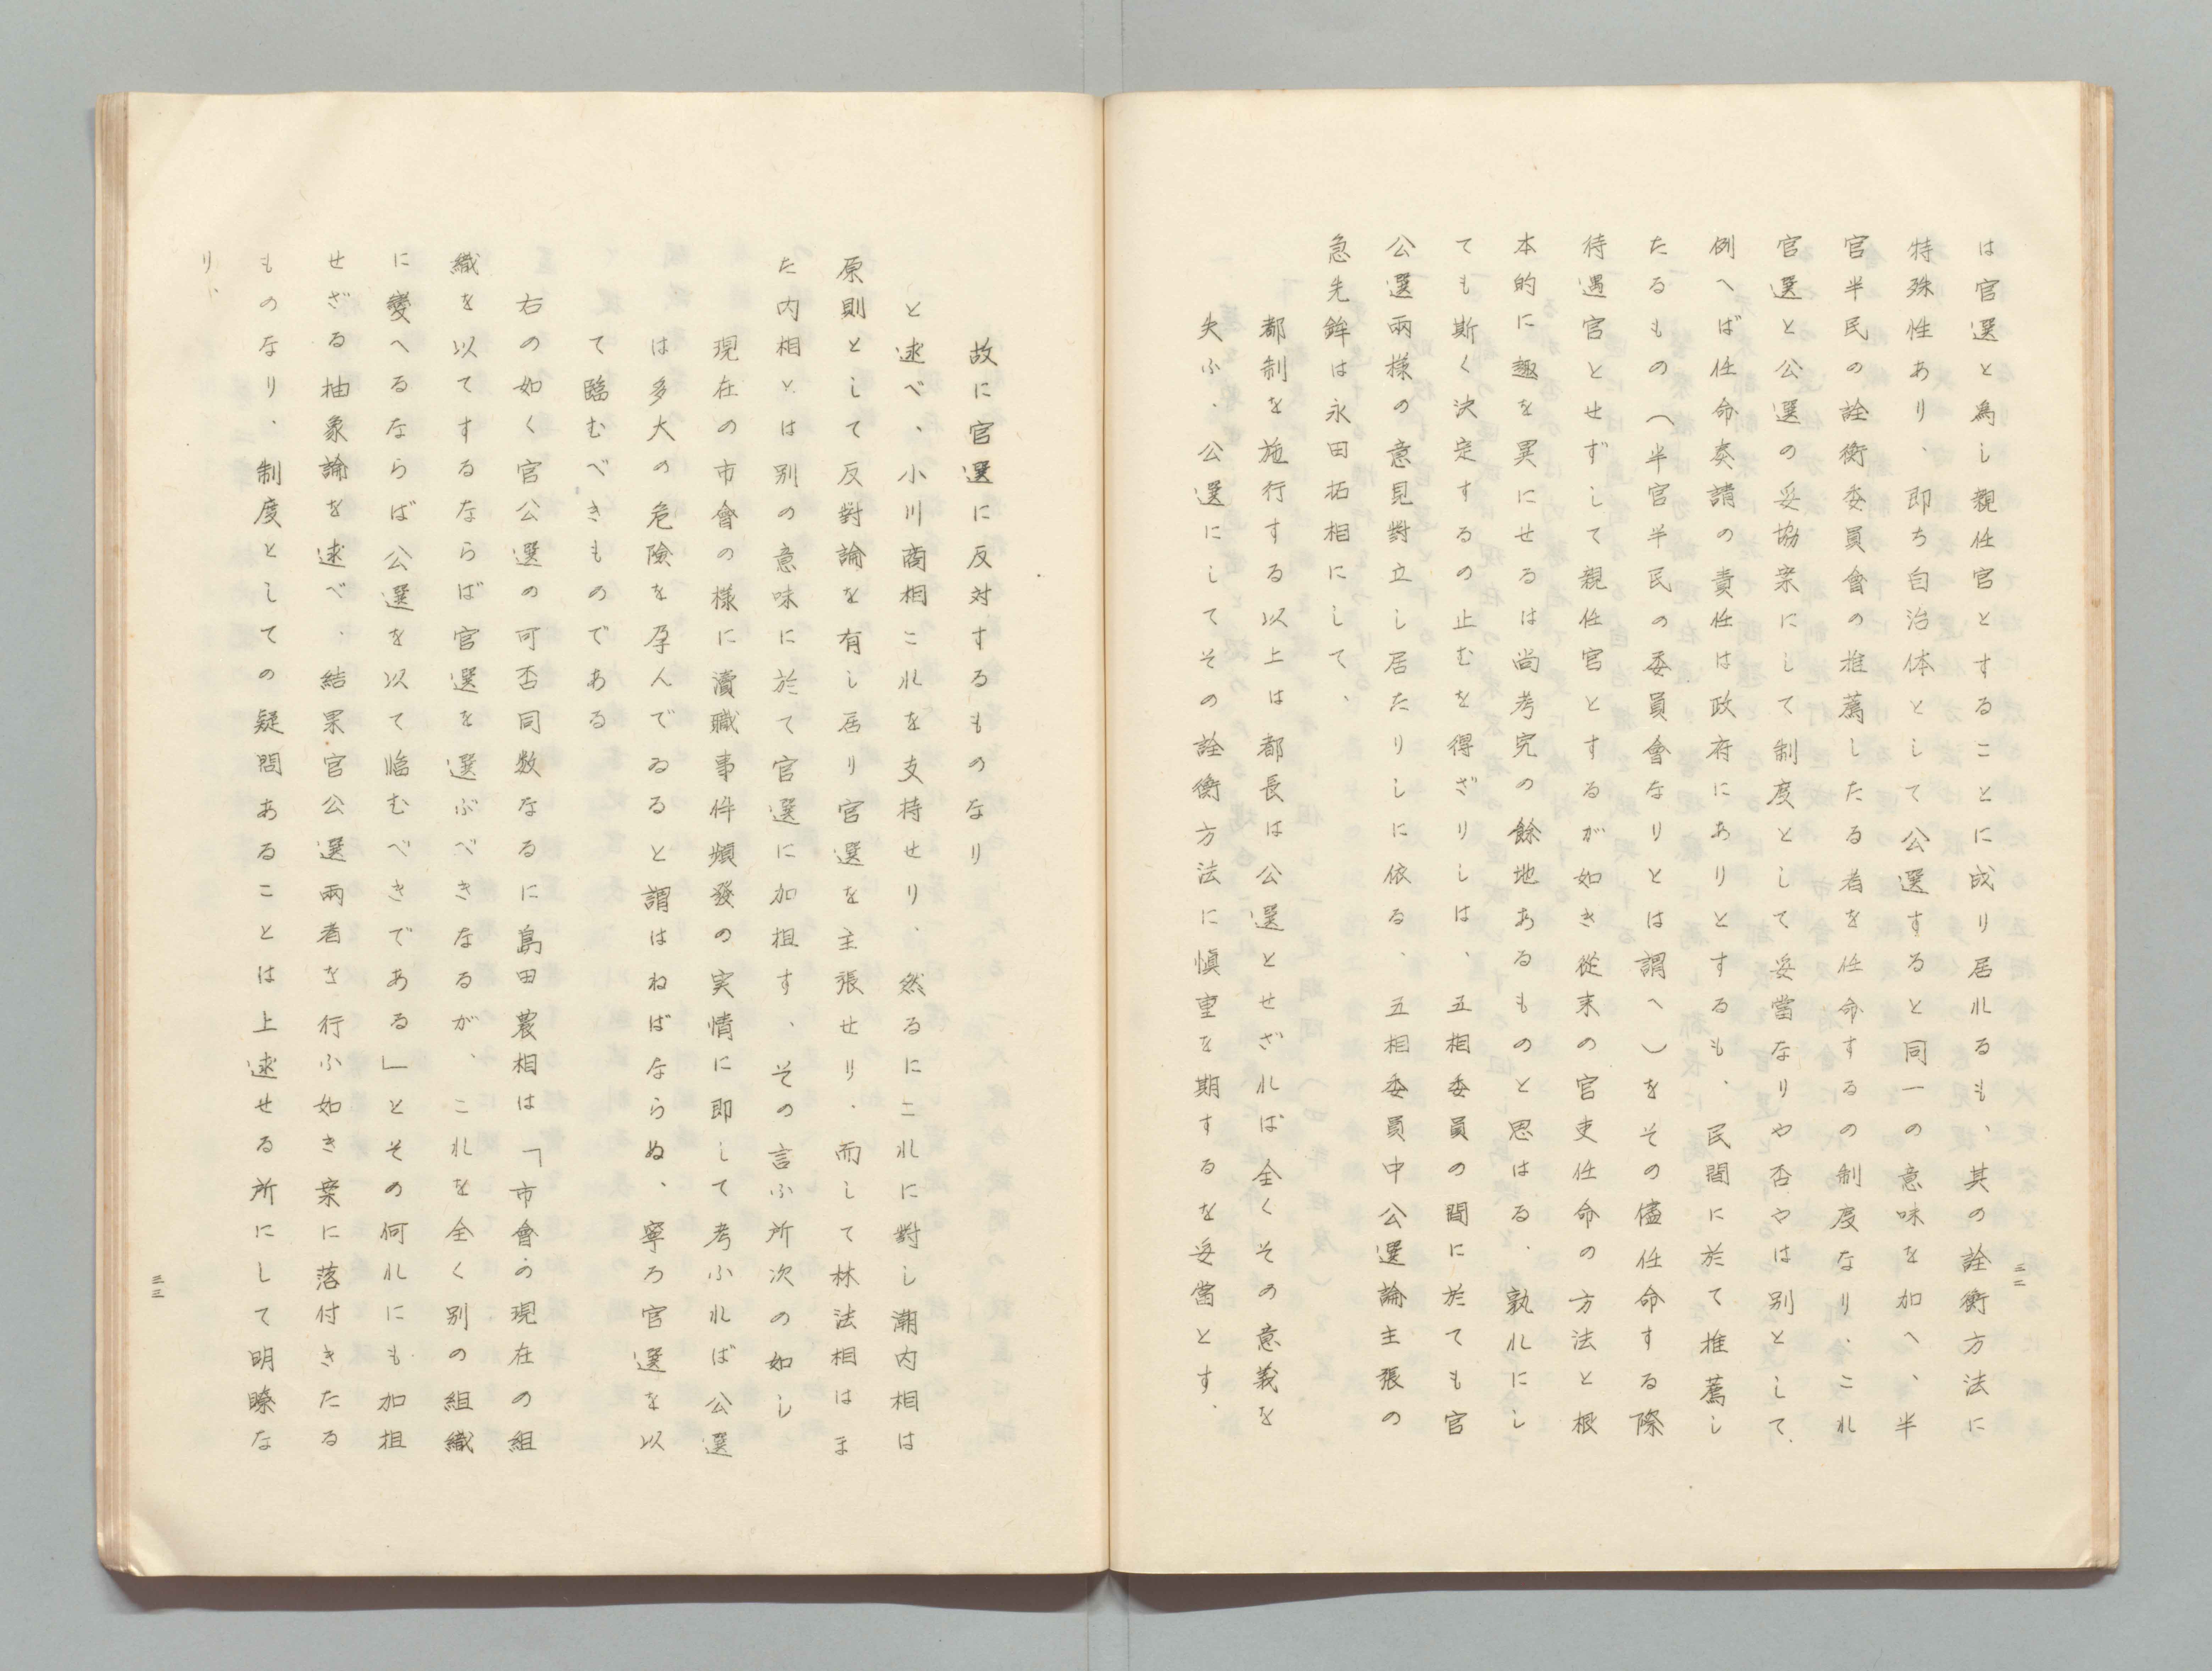 は官選と為し親任官とすることに成り居れるも、其の詮衡方法に
特殊性あり、即ち自治体として公選すると同一の意味を加へ、半
官半民の詮衡委員會の推薦したる者を任命するの制度なり、これ
官選と公選の妥協案にして制度として妥當なりや否やは別として、
例へば任命奏請の責任は政府にありとするも、民間に於て推薦し
たるもの（半官半民の委員會なりとは謂へ）をその儘任命する際
待遇官とせずして親任官とするが如き從来の官吏任命の方法と根
本的に趣を異にせるは尚考究の餘地あるものと思はる、孰れにし
ても斯く決定するの止むを得ざりしは、五相委員の間に於ても官
公選兩様の意見對立し居たりしに依る、五相委員中公選論主張の
急先鉾は永田拓相にして、
都制を施行する以上は都長は公選とせざれば全くその意義を
失ふ、公選にしてその詮衡方法に慎重を期するを妥當とす、
三二
故に官選に反対するものなり
と述べ、小川商相これを支持せり、然るにこれに對し潮内相は
原則として反對論を有し居り官選を主張せり、而して林法相はま
た内相とは別の意味に於て官選に加担す、その言ふ所次の如し
現在の市會の様に瀆職事件頻發の実情に即して考ふれば公選
は多大の危險を孕んでゐると謂はねばならぬ、寧ろ官選を以
て臨むべきものである
右の如く官公選の可否同数なるに島田農相は「市會の現在の組
織を以てするならば官選を選ぶべきなるが、これを全く別の組織
に變へるならば公選を以て臨むべきである」とその何れにも加担
せざる抽象論を述べ、結果官公選兩者を行ふ如き案に落付きたる
ものなり、制度としての疑問あることは上述せる所にして明瞭な
り、
三三